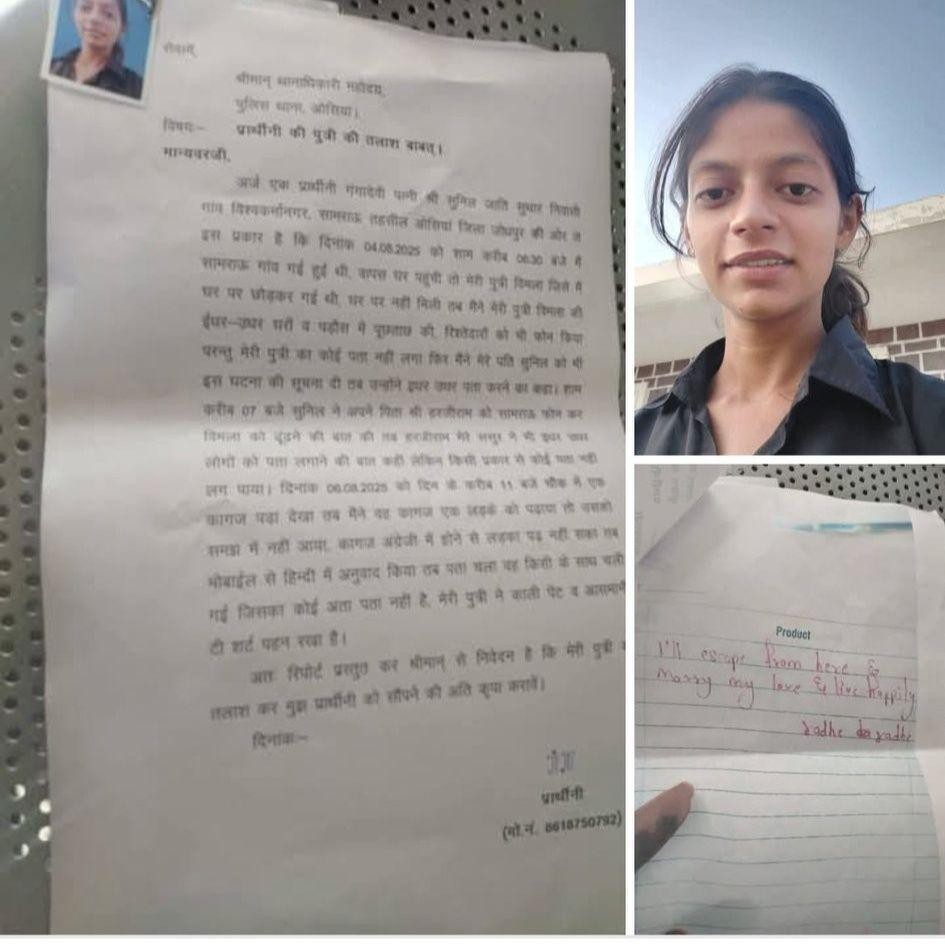 सेवामें,
श्रीमान् थानाधिकारी महोदय,
पुलिस थाना, ओसियां।
विषयः- प्रार्थीनी की पुत्री की तलाश बाबत्।
मान्यवरजी,
अर्ज एक प्रार्थीनी गंगादेवी पत्नी श्री सुनिल जाति सुथार निवासी
गांव विश्वकर्मानगर, सामराऊ तहसील ओसियां जिला जोधपुर की ओर से
इस प्रकार है कि दिनांक 04.08.2025 को शाम करीब 06:30 बजे मैं
सामराऊ गांव गई हुई थी, वापस घर पहुंची तो मेरी पुत्री विमला जिसे मैं
घर पर छोड़कर गई थी, घर पर नहीं मिली तब मैने मेरी पुत्री विमला की
ईधर-उधर घरों व पड़ौस में पूछताछ की, रिश्तेदारों को भी फोन किया
परन्तु मेरी पुत्री का कोई पता नहीं लगा फिर मैंने मेरे पति सुनिल को भी
इस घटना की सूचना दी तब उन्होंने इधर उधर पता करने का कहा। शाम
करीब 07 बजे सुनिल ने अपने पिता श्री हरजीराम को सामराऊ फोन कर
विमला को ढूंढने की बात की तब हरजीराम मेरे ससुर ने भी इधर उधर
लोगों को पता लगाने की बात कही लेकिन किसी प्रकार से कोई पता नहीं
लग पाया। दिनांक 06.08.2025 को दिन के करीब 11 बजे चौक में एक
कागज पड़ा देखा तब मैंने वह कागज एक लड़के को पढ़ाया तो उसको
समझ में नहीं आया, कागज अंग्रेजी में होने से लड़का पढ़ नहीं सका तब
मोबाईल से हिन्दी में अनुवाद किया तब पता चला वह किसी के साथ चली
गई जिसका कोई अता पता नहीं है, मेरी पुत्री ने काली पेंट व आसमानी
टी शर्ट पहन रखा है।
अतः रिपोर्ट प्रस्तुत कर श्रीमान् से निवेदन है कि मेरी पुत्री
तलाश कर मुझ प्रार्थीनी को सौंपने की अति कृपा करावें।
दिनांकः-
प्रार्थीनी
(मो.नं. 8618750792)
Product
I'll escape from here &
marry my love & live happily
radhe radhe